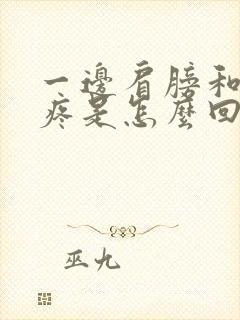 一邊肩膀和
疼是怎麼回
巫九